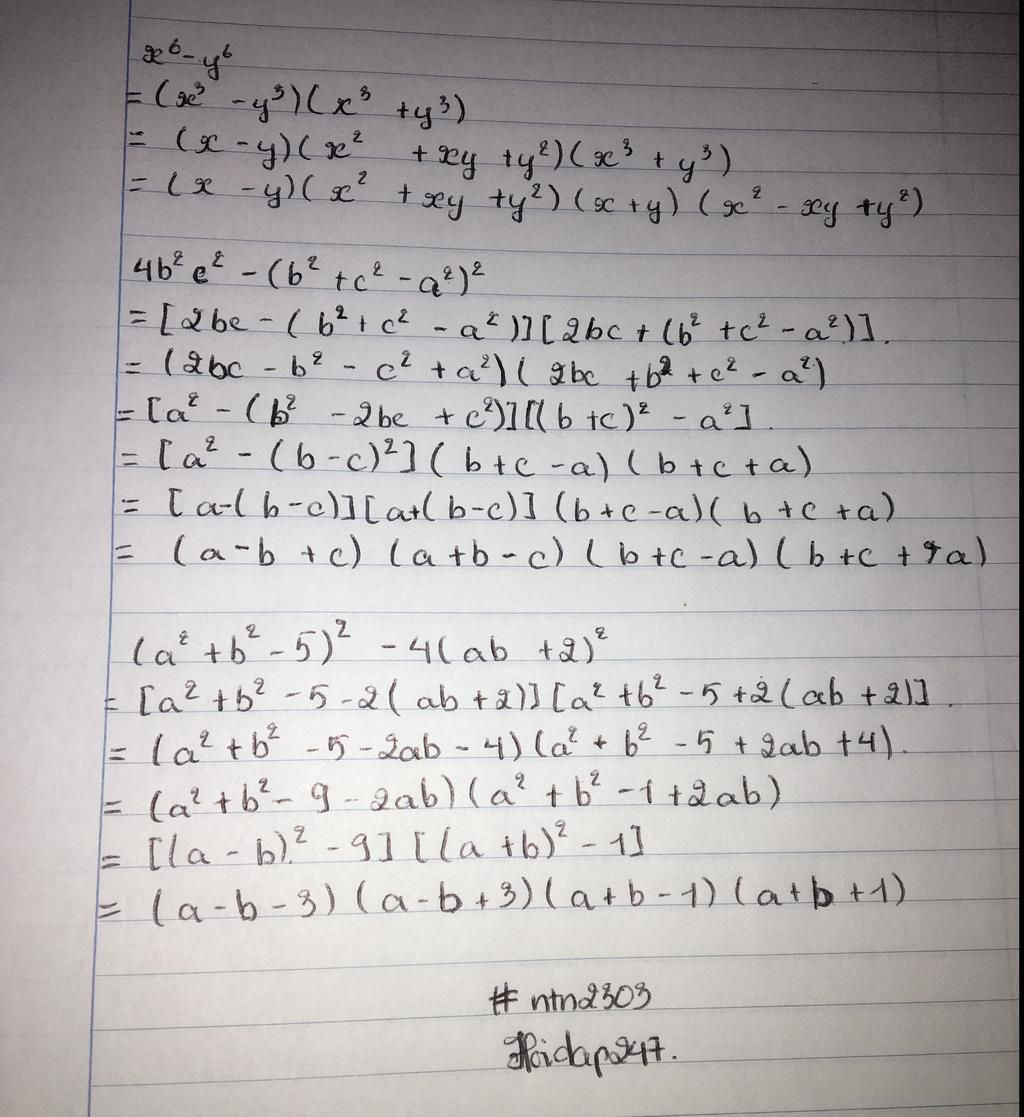 x⁶ - y⁶
= (x³ - y³)(x³ + y³)
= (x - y)(x² + xy + y²)(x³ + y³)
= (x - y)(x² + xy + y²)(x + y)(x² - xy + y²)
4b²c² - (b² + c² - a²)²
= [2bc - (b² + c² - a²)][2bc + (b² + c² - a²)].
= (2bc - b² - c² + a²)(2bc + b² + c² - a²)
= [a² - (b² - 2bc + c²)][(b + c)² - a²].
= [a² - (b - c)²](b + c - a)(b + c + a)
= [a-(b-c)][a+(b-c)](b+c-a)(b+c+a)
= (a-b+c)(a+b-c)(b+c-a)(b+c+a)
(a² + b² - 5)² - 4(ab + 2)²
= [a² + b² - 5 - 2(ab + 2)][a² + b² - 5 + 2(ab + 2)].
= (a² + b² - 5 - 2ab - 4)(a² + b² - 5 + 2ab + 4).
= (a² + b² - 9 - 2ab)(a² + b² - 1 + 2ab)
= [(a - b)² - 9][(a + b)² - 1]
= (a - b - 3)(a - b + 3)(a + b - 1)(a + b + 1)
# ntn2303
Hoidap247.